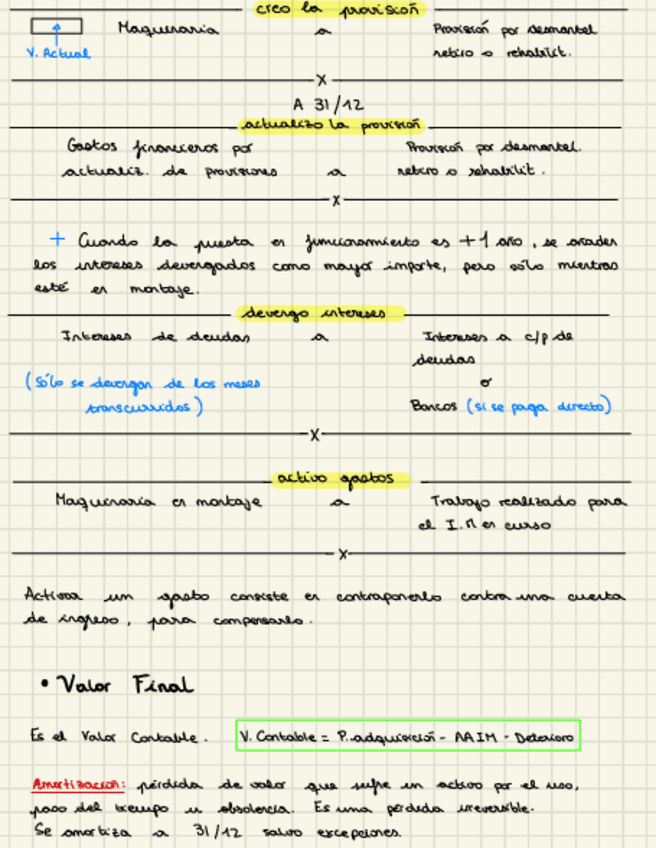 creo la provisión
Maquinaria a Provisión por desmantel.
V. Actual retiro o rehabilit.
X
A 31/12
actualizo la provisión
Gastos financieros por Provisión por desmantel.
actualiz. de provisiones a retiro o rehabilit.
X
+ Cuando la puesta en funcionamiento es +1 año, se añaden
los intereses devengados como mayor importe, pero sólo mientras
esté en montaje.
devengo intereses
Intereses de deudas a Intereses a c/p de
deudas
(Sólo se devengan de los meses o
transcurridos) Bancos (si se paga directo)
X
activo gastos
Maquinaria en montaje a Trabajo realizado para
el I.M en curso
X
Activar un gasto consiste en contraponerlo contra una cuenta
de ingreso, para compensarlo.
• Valor Final
Es el Valor Contable. V. Contable = P. adquisición - AAIM - Deterioro
Amortización: pérdida de valor que sufre un activo por el uso,
paso del tiempo u obsolencia. Es una pérdida irreversible.
Se amortiza a 31/12 salvo excepciones.